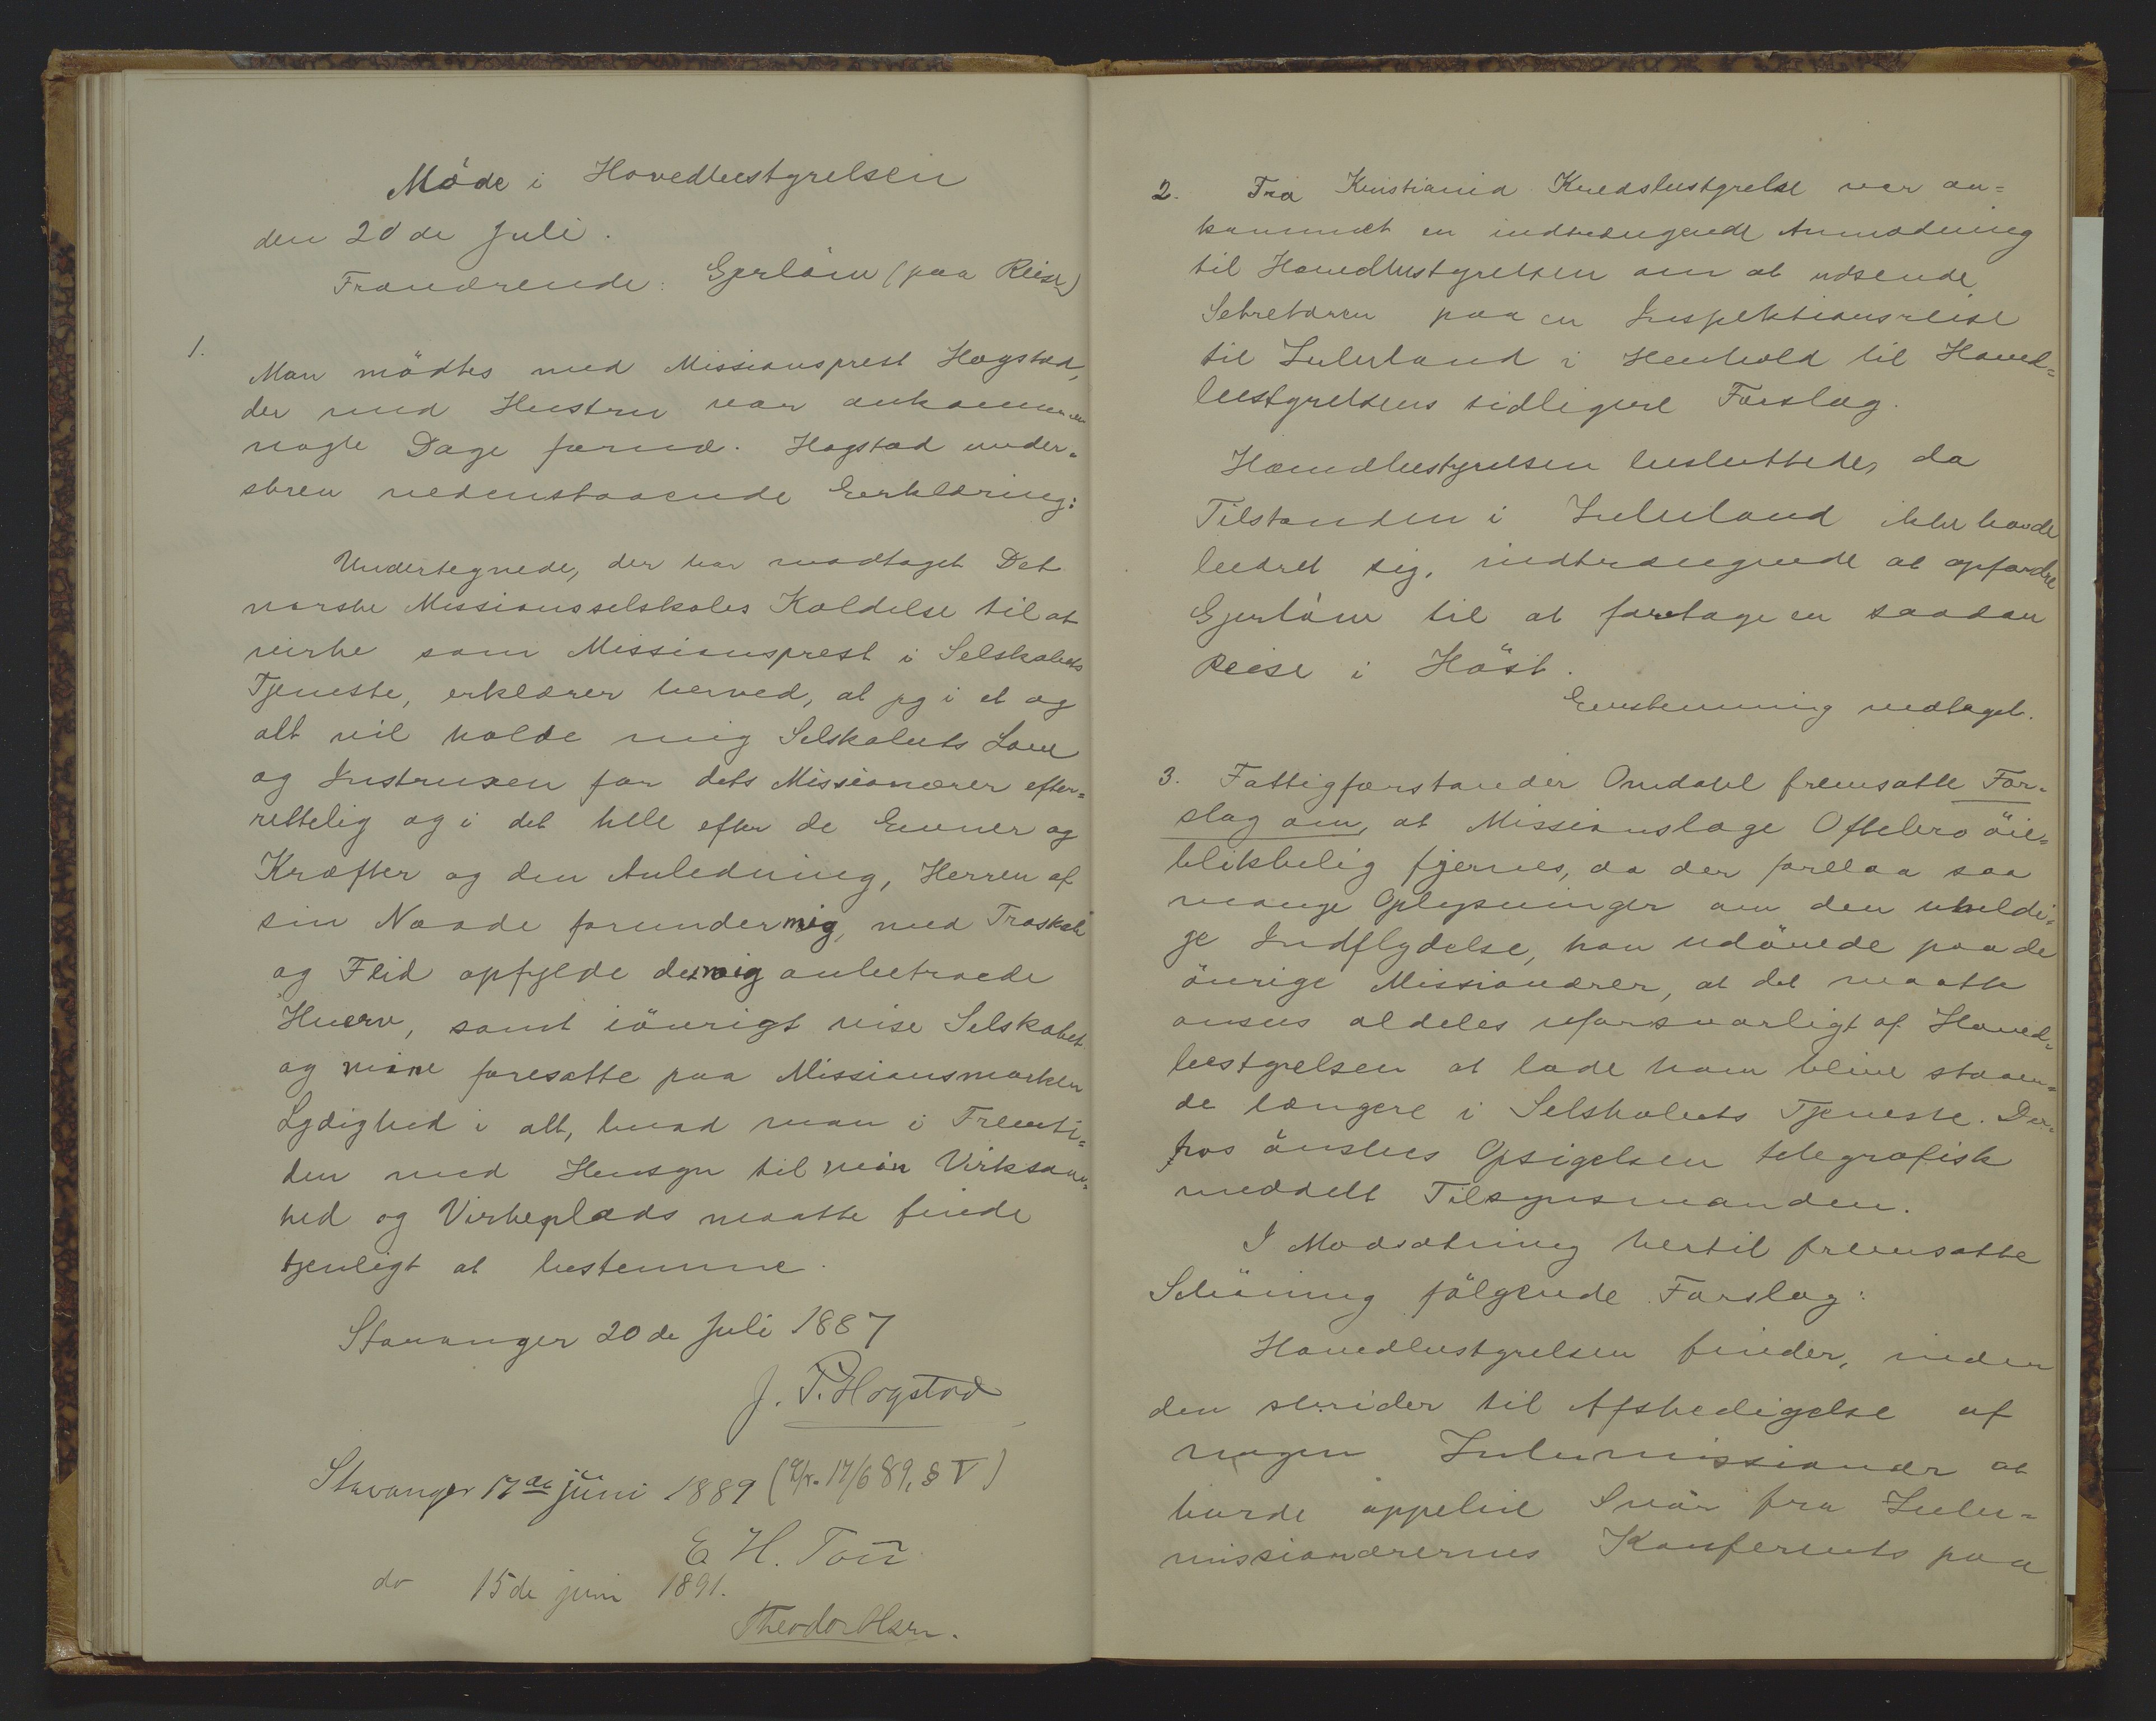 Möde i Hovedbestyrelsen
den 20de Juli.
Fraværende: Gjerløw (paa Reise)
1.
Man mödtes med Missionsprest Hogstad,
der med Hustru var ankommen
nogle Dage forud. Hogstad under-
skrev nedenstaaende Erklæring:
Undertegnede, der har modtaget Det
norske Missionsselskabs Kaldelse til at
virke som Missionsprest i Selskabets
Tjeneste, erklærer herved, at jeg i et og
alt vil holde mig Selskabets Love
og Instruxen for dets Missionærer efter=
rettelig og i det hele efter de Evner og
Kræfter og den Anledning, Herren af
sin Naade forunder mig, med Troskab
og Flid opfylde det mig anbetroede
Hverv, samt iövrigt vise Selskabet
og mine foresatte paa Missionsmarken
Lydighed i alt, hvad man i Fremti=
den med Hensyn til min Virksom=
hed og Virkeplads maatte finde
tjenligt at bestemme.
Stavanger 20de Juli 1887
J. P. Hogstad
Stavanger 17de juni 1889 (17/6 89, § V)
E H. Tou
do 15de juni 1891.
Theodor Olsen.
2. Fra Kristiania Kredsbestyrelse var an=
kommet en indtrængende Anmodning
til Hovedbestyrelsen om at udsende
Sekretæren paa en Inspektionsreise
til Zululand i Henhold til Hoved=
bestyrelsens tidligere Forslag.
Hovedbestyrelsen besluttede, da
Tilstanden i Zululand ikke havde
bedret sig, indtrængende at opfordre
Gjerlöw til at foretage en saadan
Reise i Höst.
Enstemmig vedtaget.
3. Fattigforstander Omdahl fremsatte For=
slag om, at Missionslæge Oftebro öie=
blikkelig fjernes, da der forelaa saa
mange Oplysninger om den uheldi=
ge Indflydelse, han udövede paa de
övrige Missionærer, at det maatte
ansees aldeles uforsvarligt af Hoved=
bestyrelsen at lade ham blive staaen=
de længere i Selskabets Tjeneste. Der=
hos önskes Opsigelsen telegrafisk
meddelt Tilsynsmanden.
I Modsætning hertil fremsatte
Schöning fölgende Forslag:
Hovedbestyrelsen finder, inden
den skrider til Afskedigelse af
nogen Zulumissionær at
burde oppebie Svar fra Zulu=
missionærernes Konferents paa